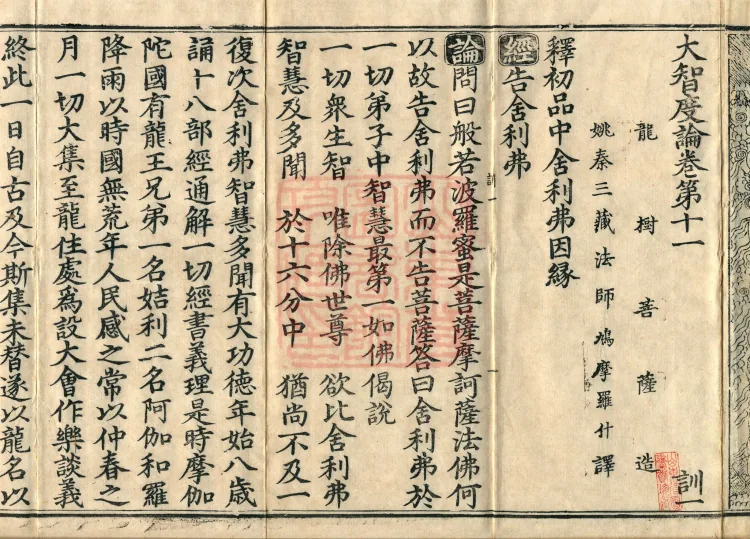 大智度論卷第十一 訓一
龍樹菩薩造
姚秦三藏法師鳩摩羅什譯
釋初品中舍利弗因緣
經告舍利弗
論問曰般若波羅蜜是菩薩摩訶薩法佛何
以故告舍利弗而不告菩薩答曰舍利弗於
一切弟子中智慧最第一如佛偈說
一切衆生智 唯除佛世尊 欲比舍利弗
智慧及多聞 於十六分中 猶尚不及一
訓一
復次舍利弗智慧多聞有大功德年始八歲
誦十八部經通解一切經書義理是時摩伽
陀國有龍王兄弟一名姞利二名阿伽和羅
降雨以時國無荒年人民感之常以仲春之
月一切大集至龍住處爲設大會作樂談義
終此一日自古及今斯集未替遂以龍名以